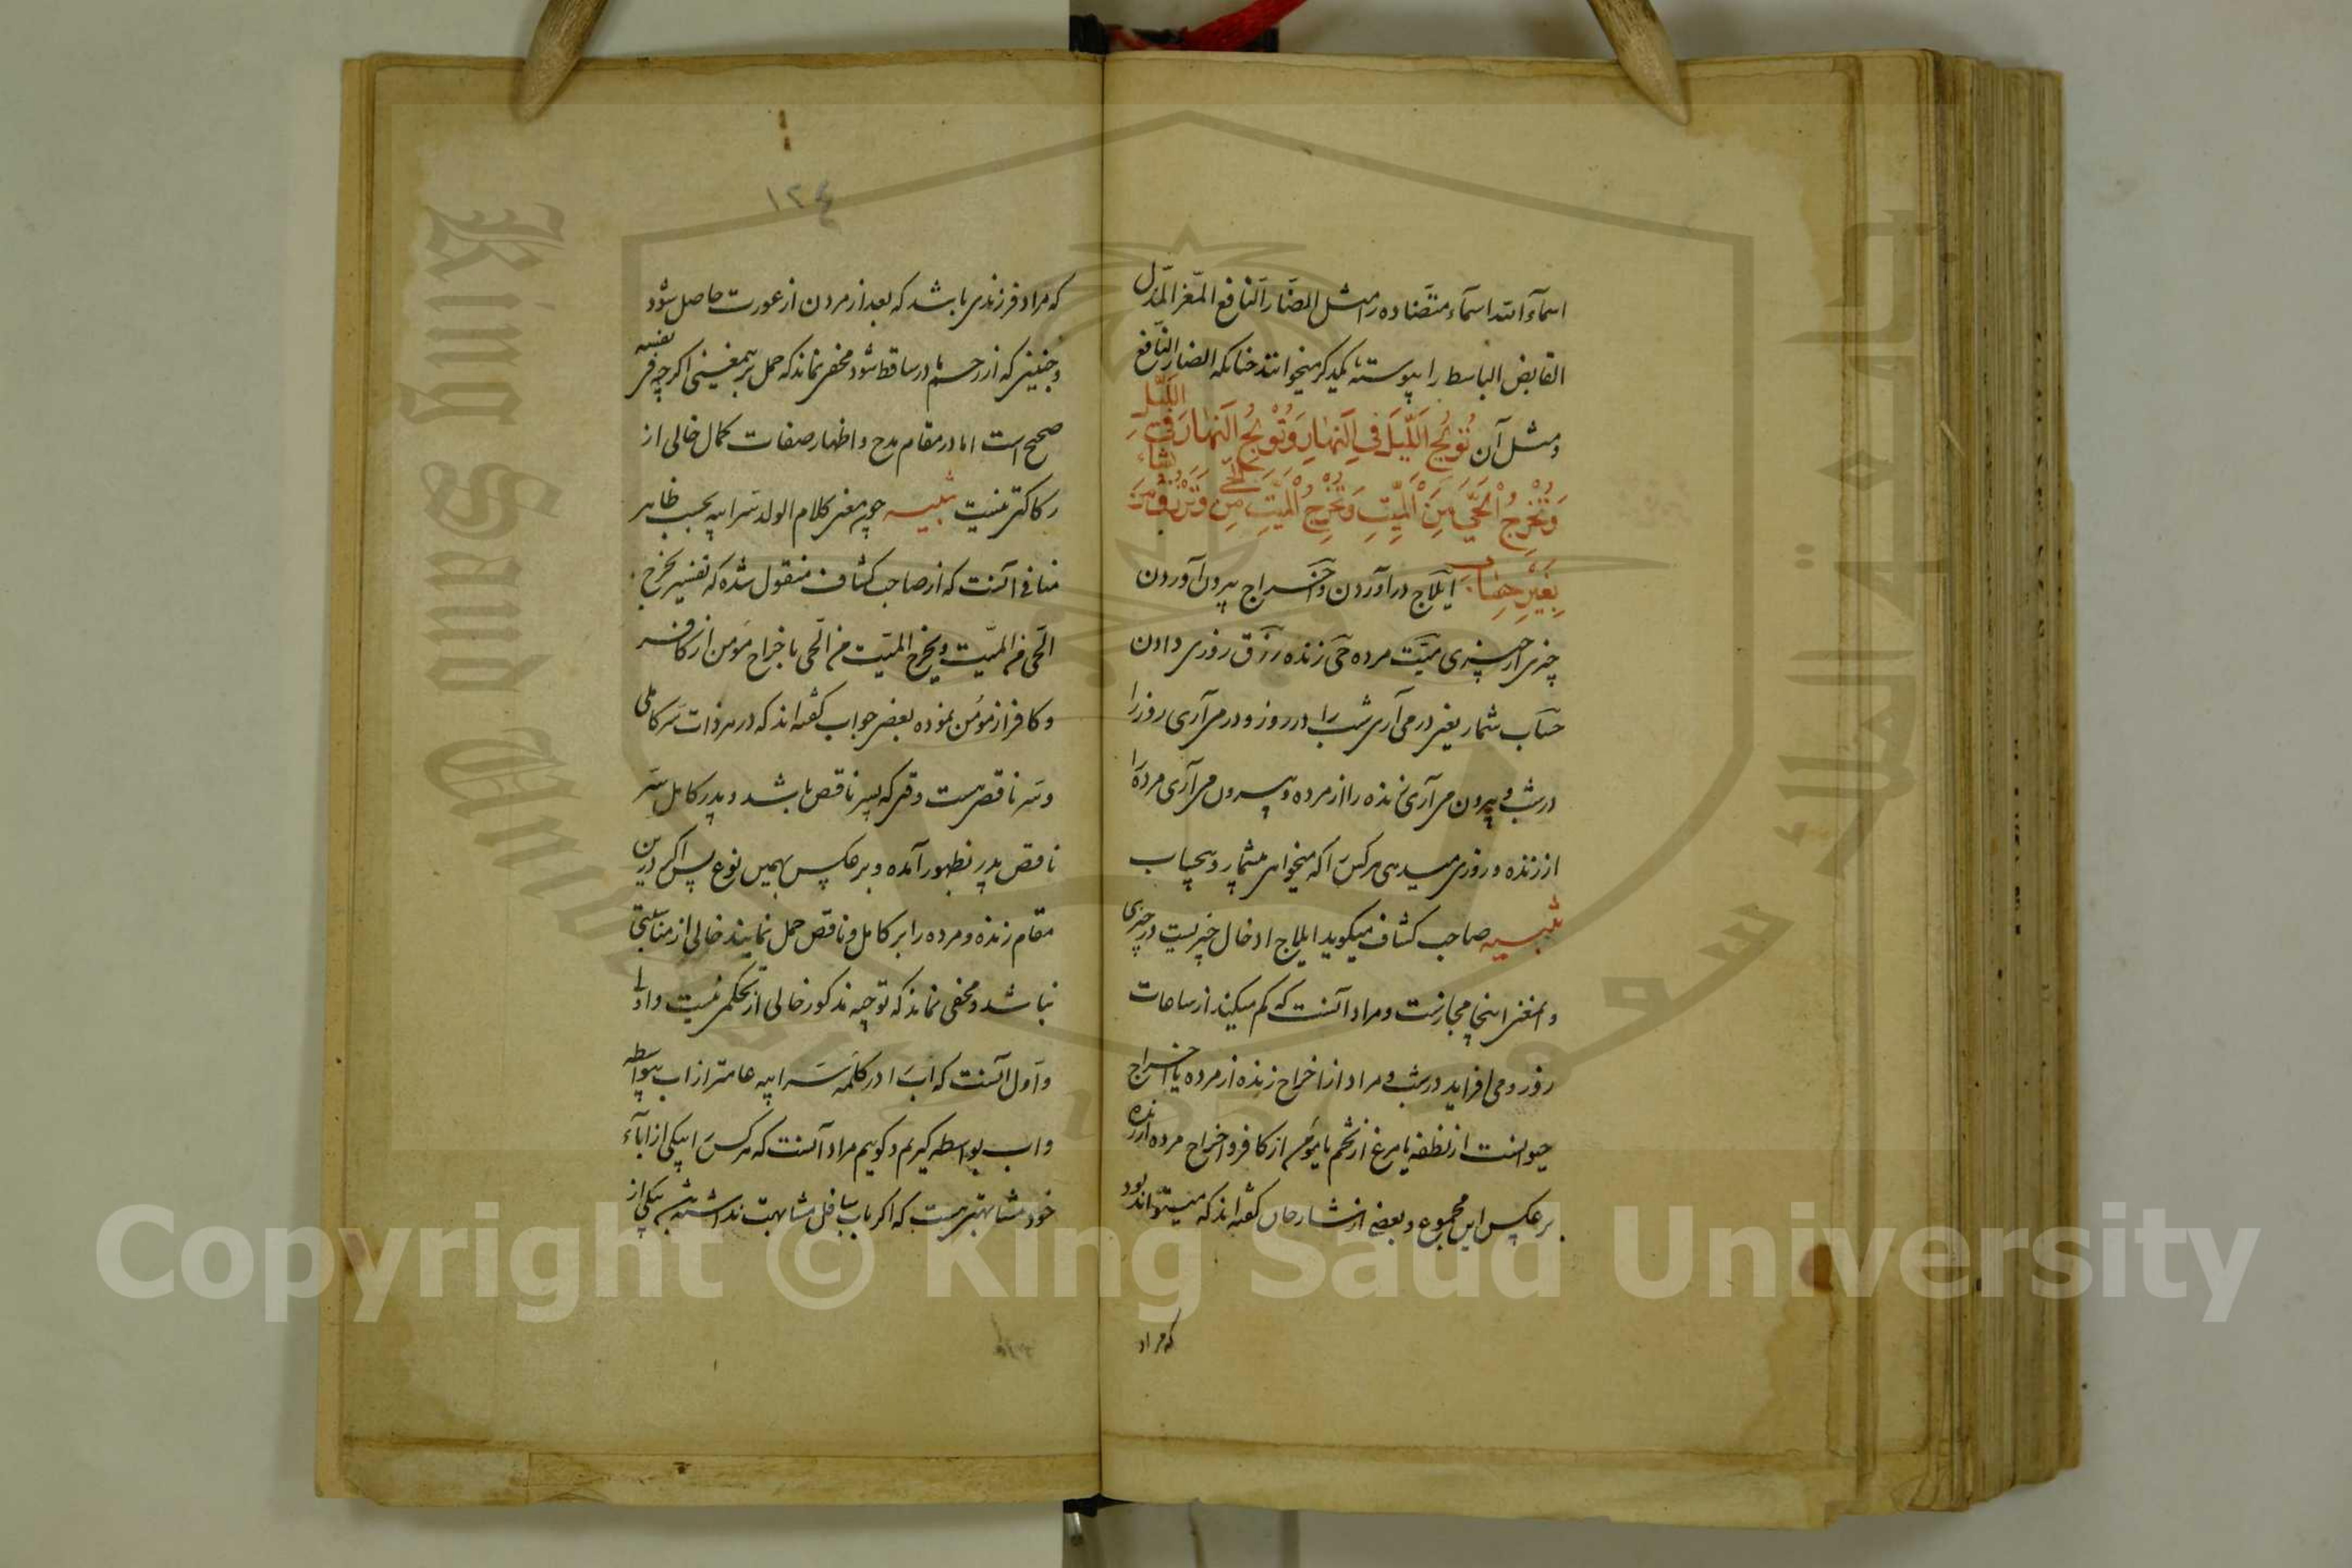 اسمآء انتد اسمآء متضاده را مثل الضار النافع المعز المذل
القابض الباسط را پیوسته بیکدیکر میخوانند چنانکه الضار النافع
ومثل آن تُولِجُ اللَّیلَ فِی النَّهارِ وَتُولِجُ النَّهارَ فِی اللَّیلِ
وَتُخْرِجُ الْحَیَّ مِنَ الْمَیِّتِ وَتُخْرِجُ الْمَیِّتَ مِنَ الْحَیِّ وَتَرْزُقُ مَنْ تَشَاءُ
بِغَیْرِ حِسَابٍ ایلاج درآوردن و اخراج بیرون آوردن
چیزی از چیزی میّت مرده حیّ زنده رزق روزی دادن
حساب شمار یعنی درمی آری شب را در روز و درمی آری روز را
در شب و بیرون می آری زنده را از مرده و بیرون می آری مرده را
از زنده و روزی میدهی هر کس را که میخواهی بیشمار و بیحساب
تنبیه صاحب کشاف میکوید ایلاج ادخال چیزیست در چیزی
و این معنی اینجا مجازست و مراد آنست که کم میکند از ساعات
روز و می افزاید در شب و مراد از اخراج زنده از مرده یا اخراج
حیوانست از نطفه یا مرغ از تخم یا مؤمن از کافر و اخراج مرده از زنده
برعکس این مجموع و بعضی از شارحان کفته اند که میتواند بود
که مراد
١٢٤
که مراد فرزندی باشد که بعد از مردن از عورت حاصل شود
و جنینی که از رحم مادر ساقط شود مخفی نماند که حمل بر این معنی اکرچه فی نفسه
صحیح است اما در مقام مدح و اظهار صفات کمال خالی از
رکاکتی نیست تنبیه چون معنی کلام الولد سرّ ابیه بحسب ظاهر
منافی آنست که از صاحب کشاف منقول شده که تفسیر یخرج
الحیّ من المیّت و یخرج المیّت من الحیّ باخراج مؤمن از کافر
و کافر از مؤمن نموده بعضی جواب کفته اند که در هر ذات سرّ کاملی
و سرّ ناقصی هست وقتی که پسر ناقص باشد و پدر کامل سرّ
ناقص پدر بظهور آمده و برعکس بهمین نوع پس اکر درین
مقام زنده و مرده را بر کامل و ناقص حمل نمایند خالی از مناسبتی
نباشد و مخفی نماند که توجیه مذکور خالی از تحکمی نیست و اولی
و اول آنست که اب را در کلمه سرّ ابیه عامتر از اب بیواسطه
و اب بواسطه کیریم و کوییم مراد آنست که هر کس را بیکی از آباء
خود مشابهتی هست که اکر باب سافل مشابهت نداشته باشد بیکی از